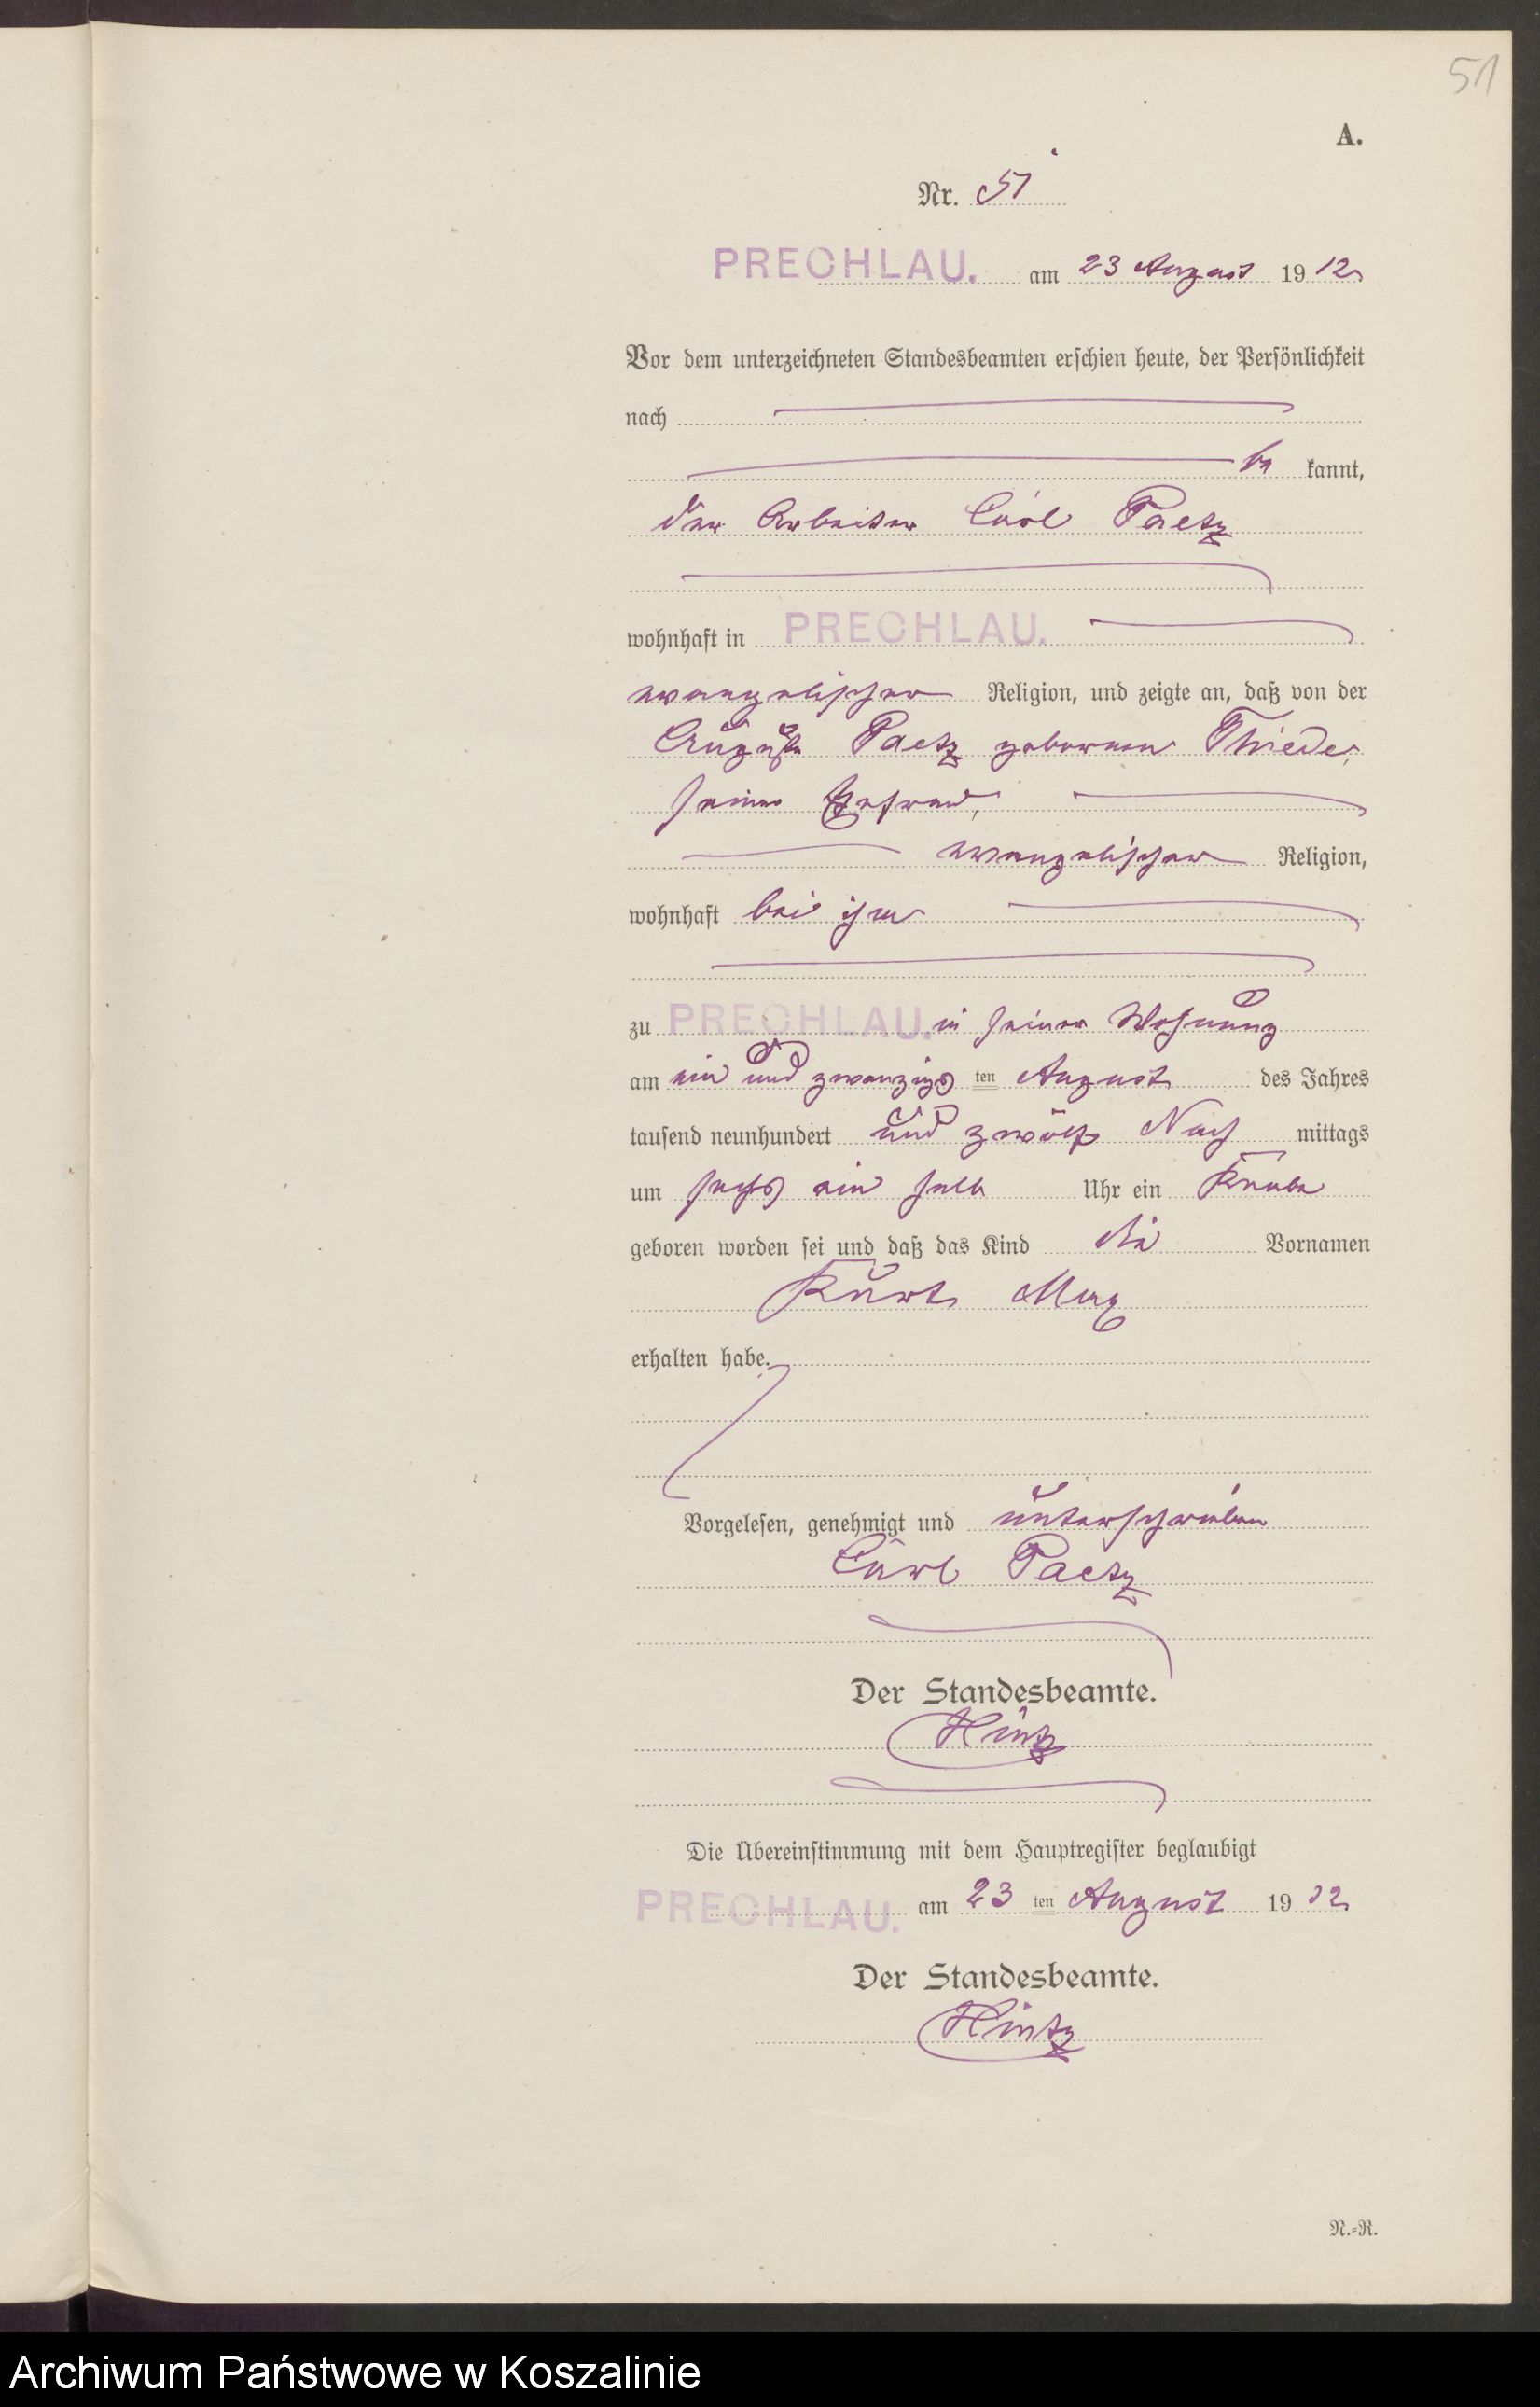 51
A.
Nr. 51
PRECHLAU. am 23 August 1912
Vor dem unterzeichneten Standesbeamten erschien heute, der Persönlichkeit
nach
be kannt,
der Arbeiter Carl Paetz
wohnhaft in PRECHLAU.
evangelischer Religion, und zeigte an, daß von der
Auguste Paetz geborenen Thiede,
seiner Ehefrau,
evangelischer Religion,
wohnhaft bei ihm
zu PRECHLAU. in seiner Wohnung
am ein und zwanzigs ten August des Jahres
tausend neunhundert und zwölf Nach mittags
um sechs ein halb Uhr ein Knabe
geboren worden sei und daß das Kind die Vornamen
Kurt Max
erhalten habe.
Vorgelesen, genehmigt und unterschrieben
Carl Paetz
Der Standesbeamte.
Hintz
Die Übereinstimmung mit dem Hauptregister beglaubigt
PRECHLAU. am 23 ten August 1912
Der Standesbeamte.
Hintz
N.=R.
Archiwum Państwowe w Koszalinie